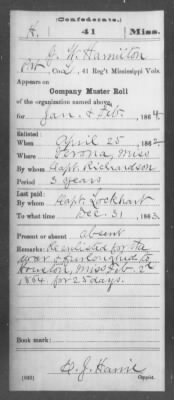 (Confederate.)
H. 41 Miss.
J. W. Hamilton
Pvt, Co. , 41 Reg't Mississippi Vols.
Appears on
Company Master Roll
of the organization named above,
for Jan. & Feb. , 186 4.
Enlisted:
When April 25 , 186 2.
Where Verona, Miss
By whom Capt. Richardson
Period 3 years
Last paid:
By whom Capt. Lockhart
To what time Dec. 31 , 186 3.
Present or absent absent
Remarks: Reenlisted for the
war & furloughed to
Houston, Miss Feb. 2
1864 for 25 days.
Book mark:
(642)
Copyist.